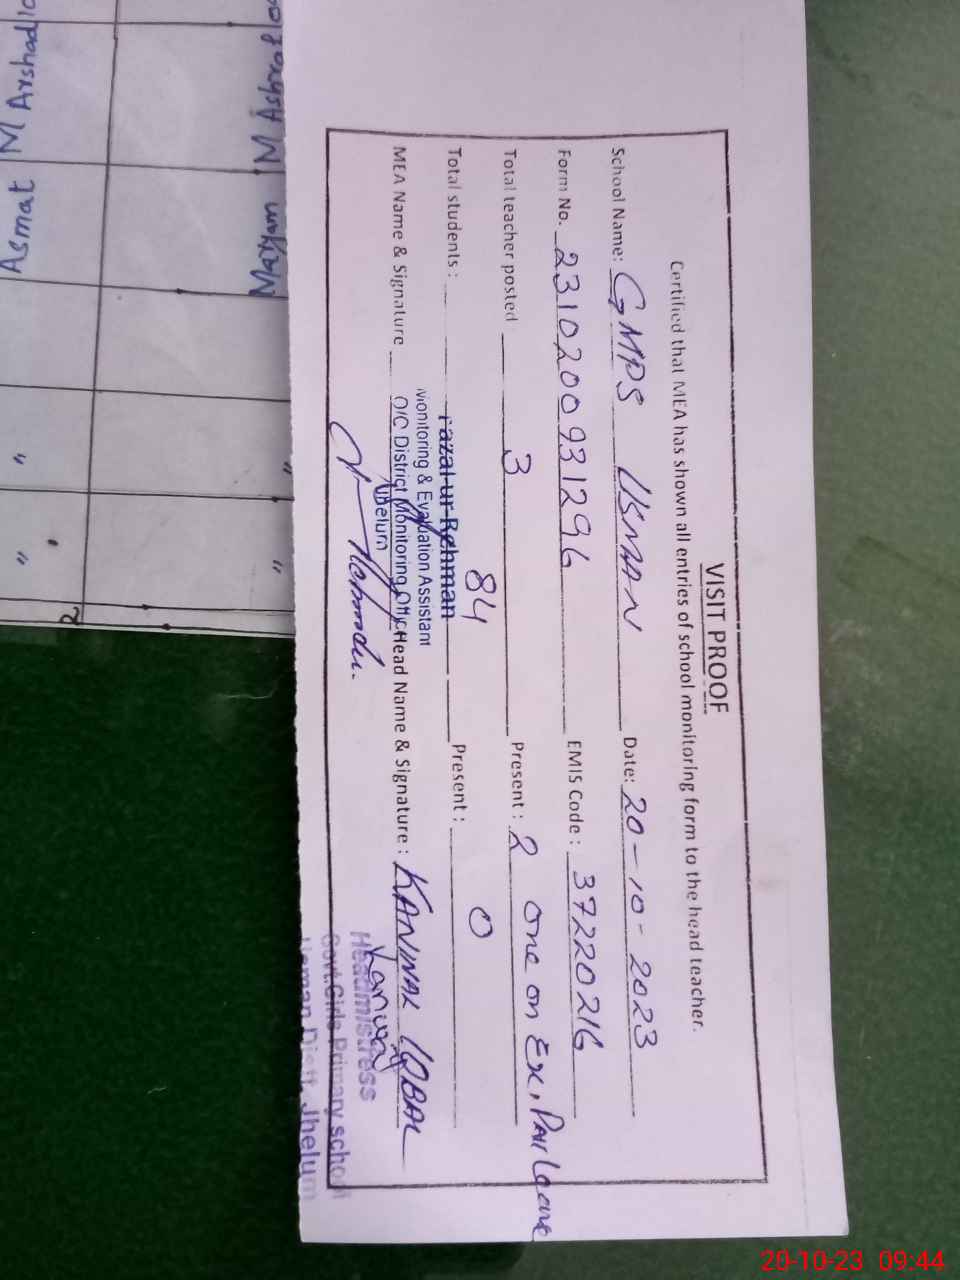 VISIT PROOF
Certified that MEA has shown all entries of school monitoring form to the head teacher.
School Name: GMPS USMAN Date: 20-10-2023
Form No. 2310200931296 EMIS Code: 37220216
Total teacher posted 3 Present: 2 one on Ex, Pak Leave
Total students: 84 Present: 0
Fazal-ur-Rehman
Monitoring & Evaluation Assistant
MEA Name & Signature O/C District Monitoring Offic Head Name & Signature: KANWAL IQBAL
Jhelum
Kanwal
Headmistress
Govt. Girls Primary school
Usman Distt. Jhelum
Asmat M Arshad
Maryam M Ashraf
" "
" "
2
20-10-23 09:44